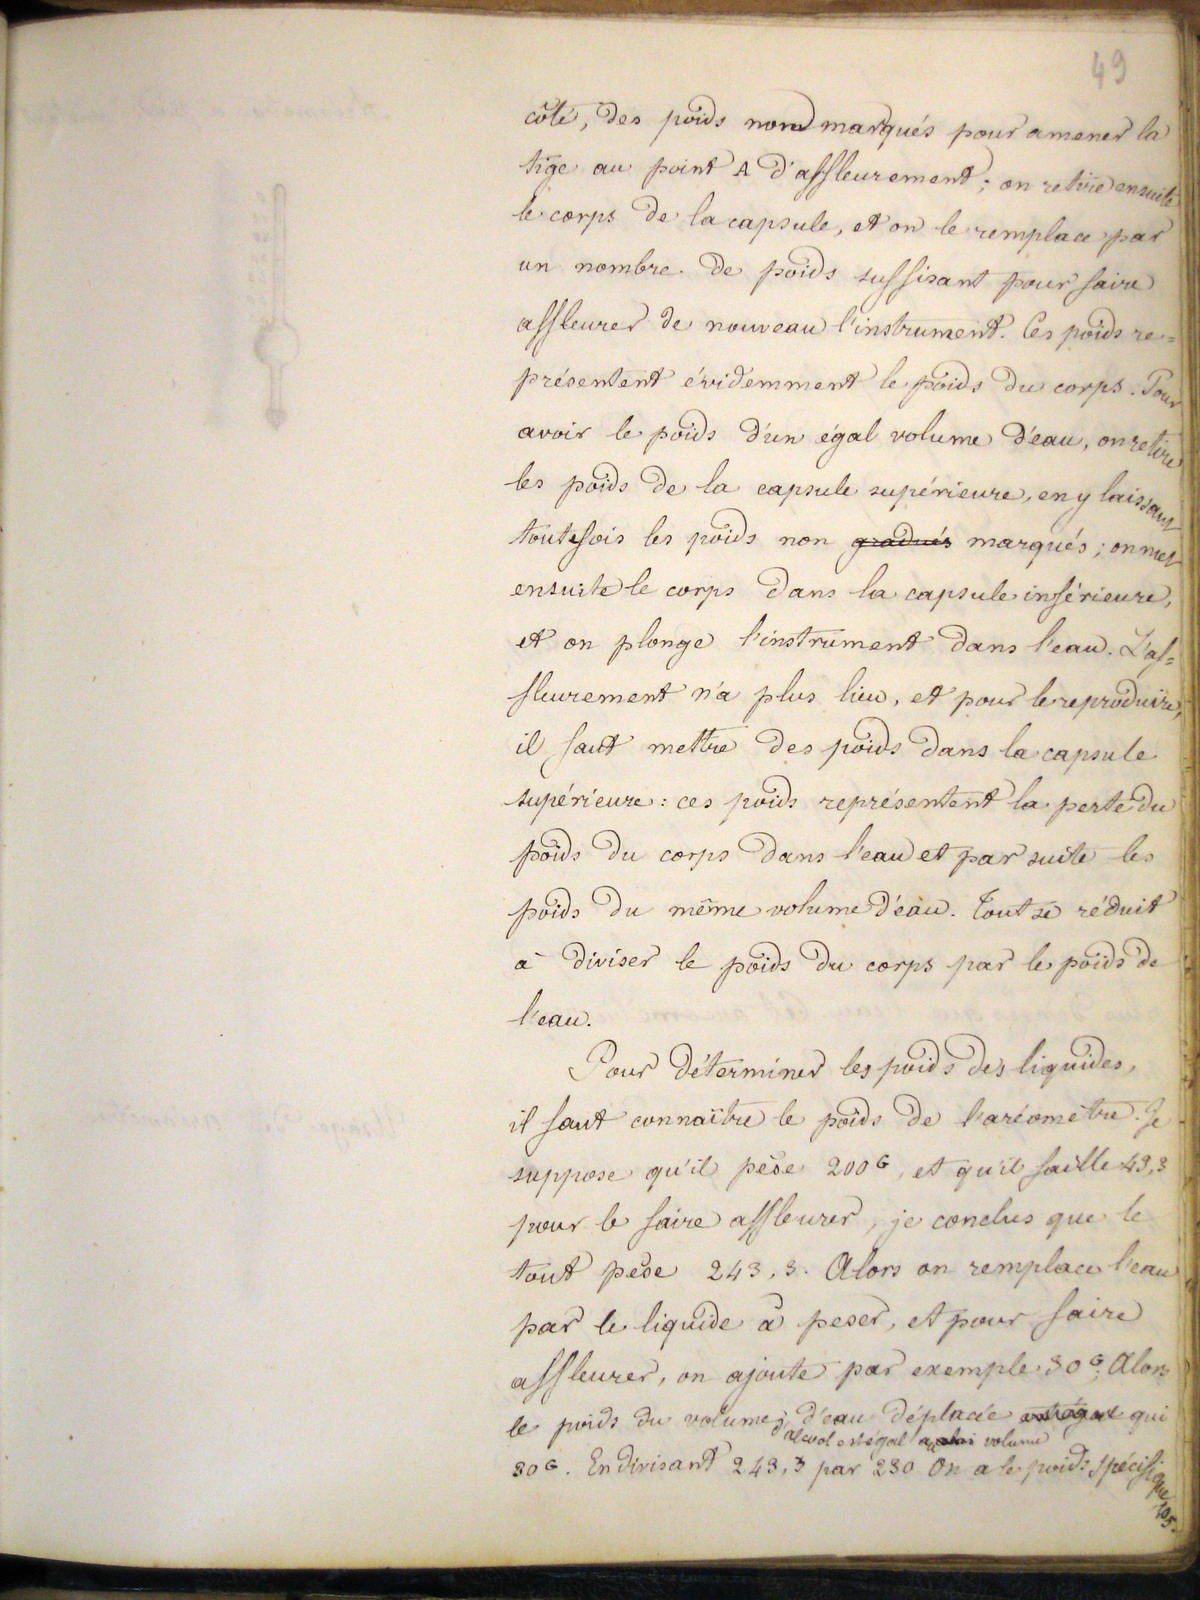 49
côté, des poids non marqués pour amener la
tige au point A d'affleurement ; on retire ensuite
le corps de la capsule, et on le remplace par
un nombre de poids suffisant pour faire
affleurer de nouveau l'instrument. Ces poids re=
présentent évidemment le poids du corps. Pour
avoir le poids d'un égal volume d'eau, on retire
les poids de la capsule supérieure, en y laissant
toutefois les poids non gradués marqués ; on met
ensuite le corps dans la capsule inférieure,
et on plonge l'instrument dans l'eau. L'af=
fleurement n'a plus lieu, et pour le reproduire,
il faut mettre des poids dans la capsule
supérieure : ces poids représentent la perte du
poids du corps dans l'eau et par suite les
poids du même volume d'eau. Tout se réduit
à diviser le poids du corps par le poids de
l'eau.
Pour déterminer les poids des liquides,
il faut connaître le poids de l'aréomètre. Je
suppose qu'il pèse 200G, et qu'il faille 43,3
pour le faire affleurer, je conclus que le
tout pèse 243,3. Alors on remplace l'eau
par le liquide à peser, et pour faire
affleurer, on ajoute par exemple 30G; Alors
le poids du volume d'eau déplacée qui
d'alcool est égal volume
30G. En divisant 243,3 par 230 On a le poids spécifique